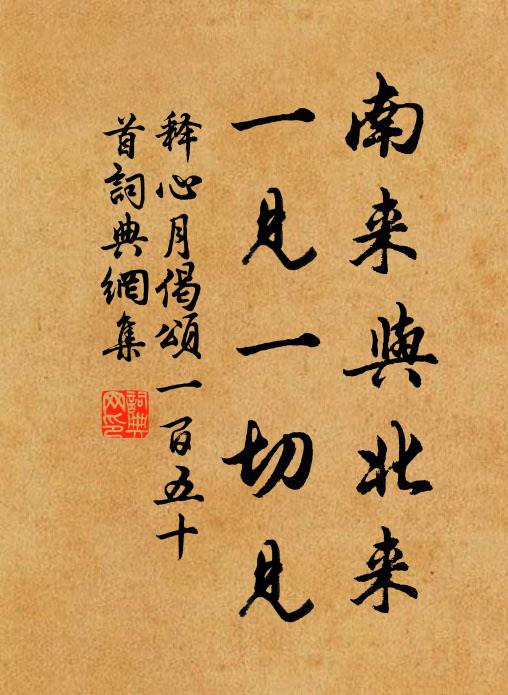 南来與北来
一见一切见
释心月偈頌一百五十
首詞典網集
詞典
网印